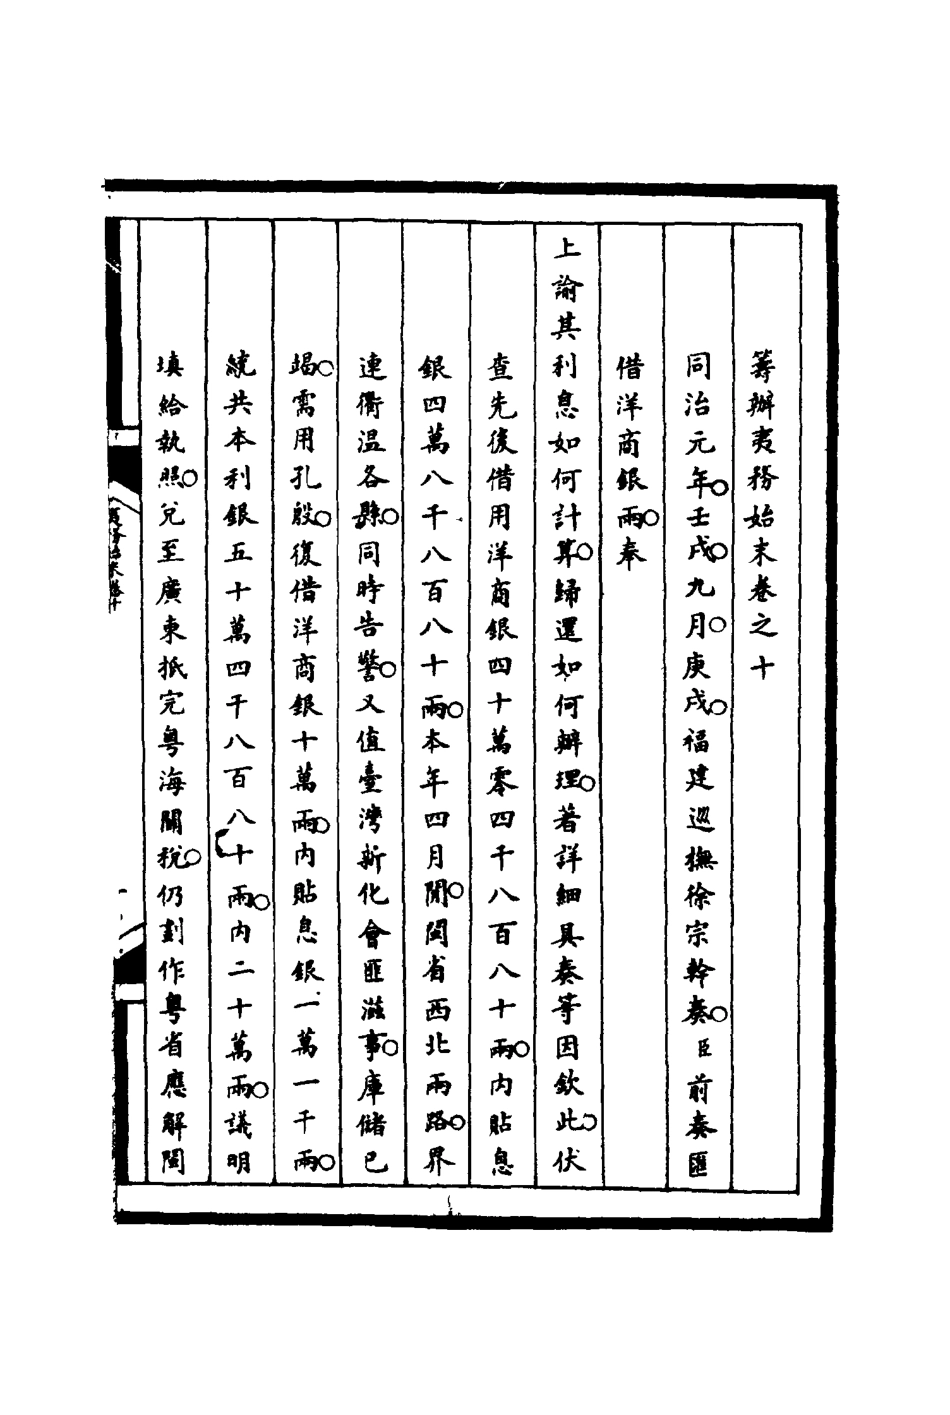 籌辦夷務始末卷之十
同治元年○壬戌○九月○庚戌○福建巡撫徐宗幹奏○臣前奏匯
借洋商銀兩○奉
上諭其利息如何計算○歸還如何辦理○著詳細具奏等因欽此○伏
查先後借用洋商銀四十萬零四千八百八十兩○內貼息
銀四萬八千八百八十兩○本年四月閒○閩省西北兩路○界
連衢温各縣○同時告警○又值臺灣新化會匪滋事○庫儲已
竭○需用孔殷○復借洋商銀十萬兩○內貼息銀一萬一千兩○
統共本利銀五十萬四千八百八十兩○內二十萬兩○議明
填給執照○兌至廣東抵完粵海關稅○仍劃作粵省應解閩